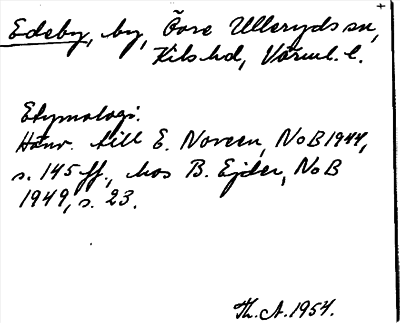 +
Edeby, by, Övre Ulleryds sn,
Kils hd, Värml. l.
Etymologi.
Hänv. till E. Noreen, NoB 1944,
s. 145 ff., hos B. Ejder, NoB
1949, s. 23.
Th. A. 1954.